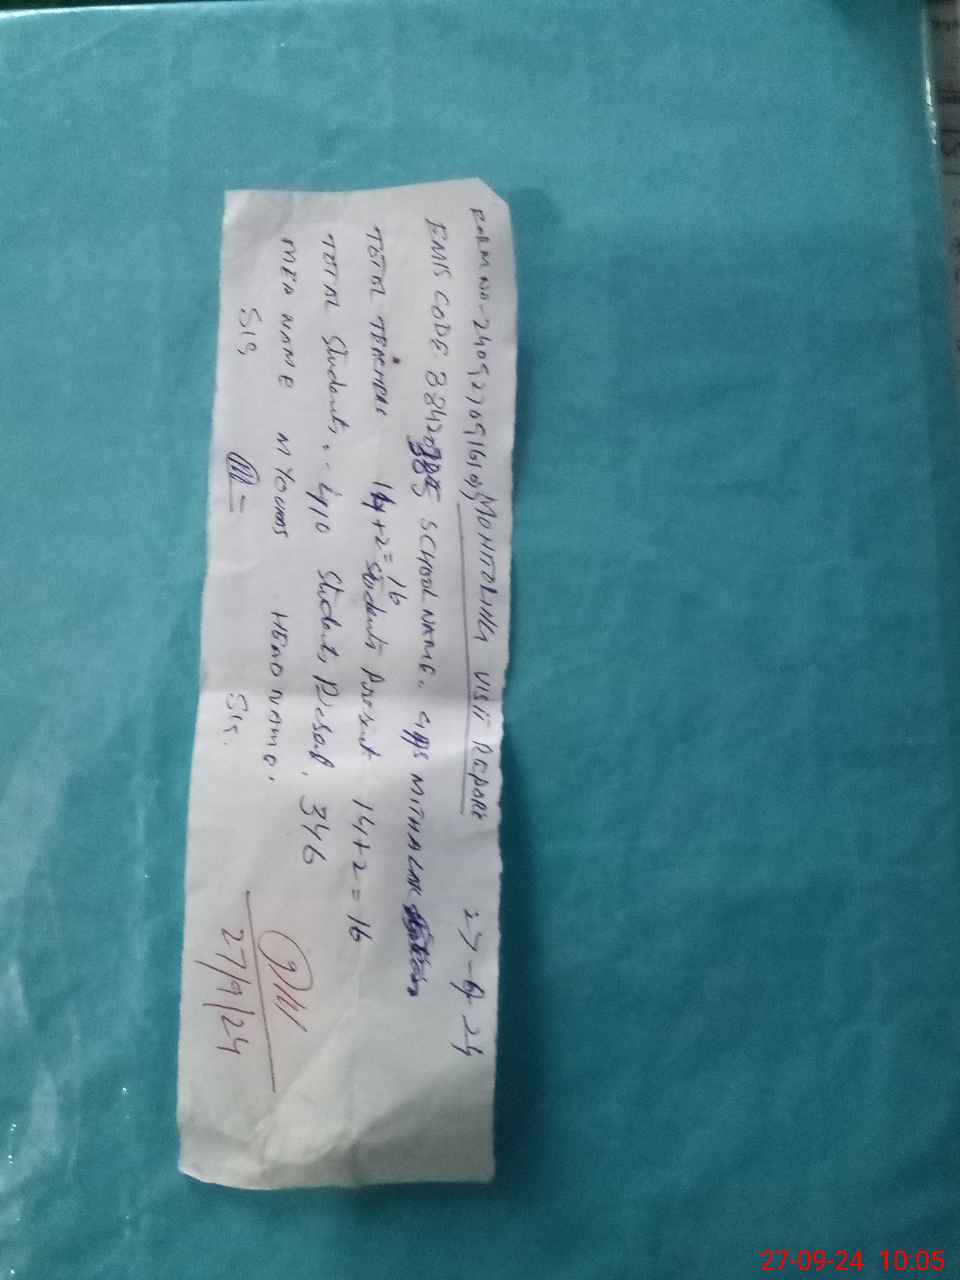 FORM NO-240927091616 MONITORING VISIT REPORT 27-9-24
EMIS CODE SCHOOL NAME. GPS MITHA
TOTAL TEACHERS 14+2=16 Students Present 14+2=16
TOTAL Students. 410 Students Presat. 346
MEA NAME M YOUNAS HEAD NAME.
SIG. SIG.
27/9/24
27-09-24 10:05